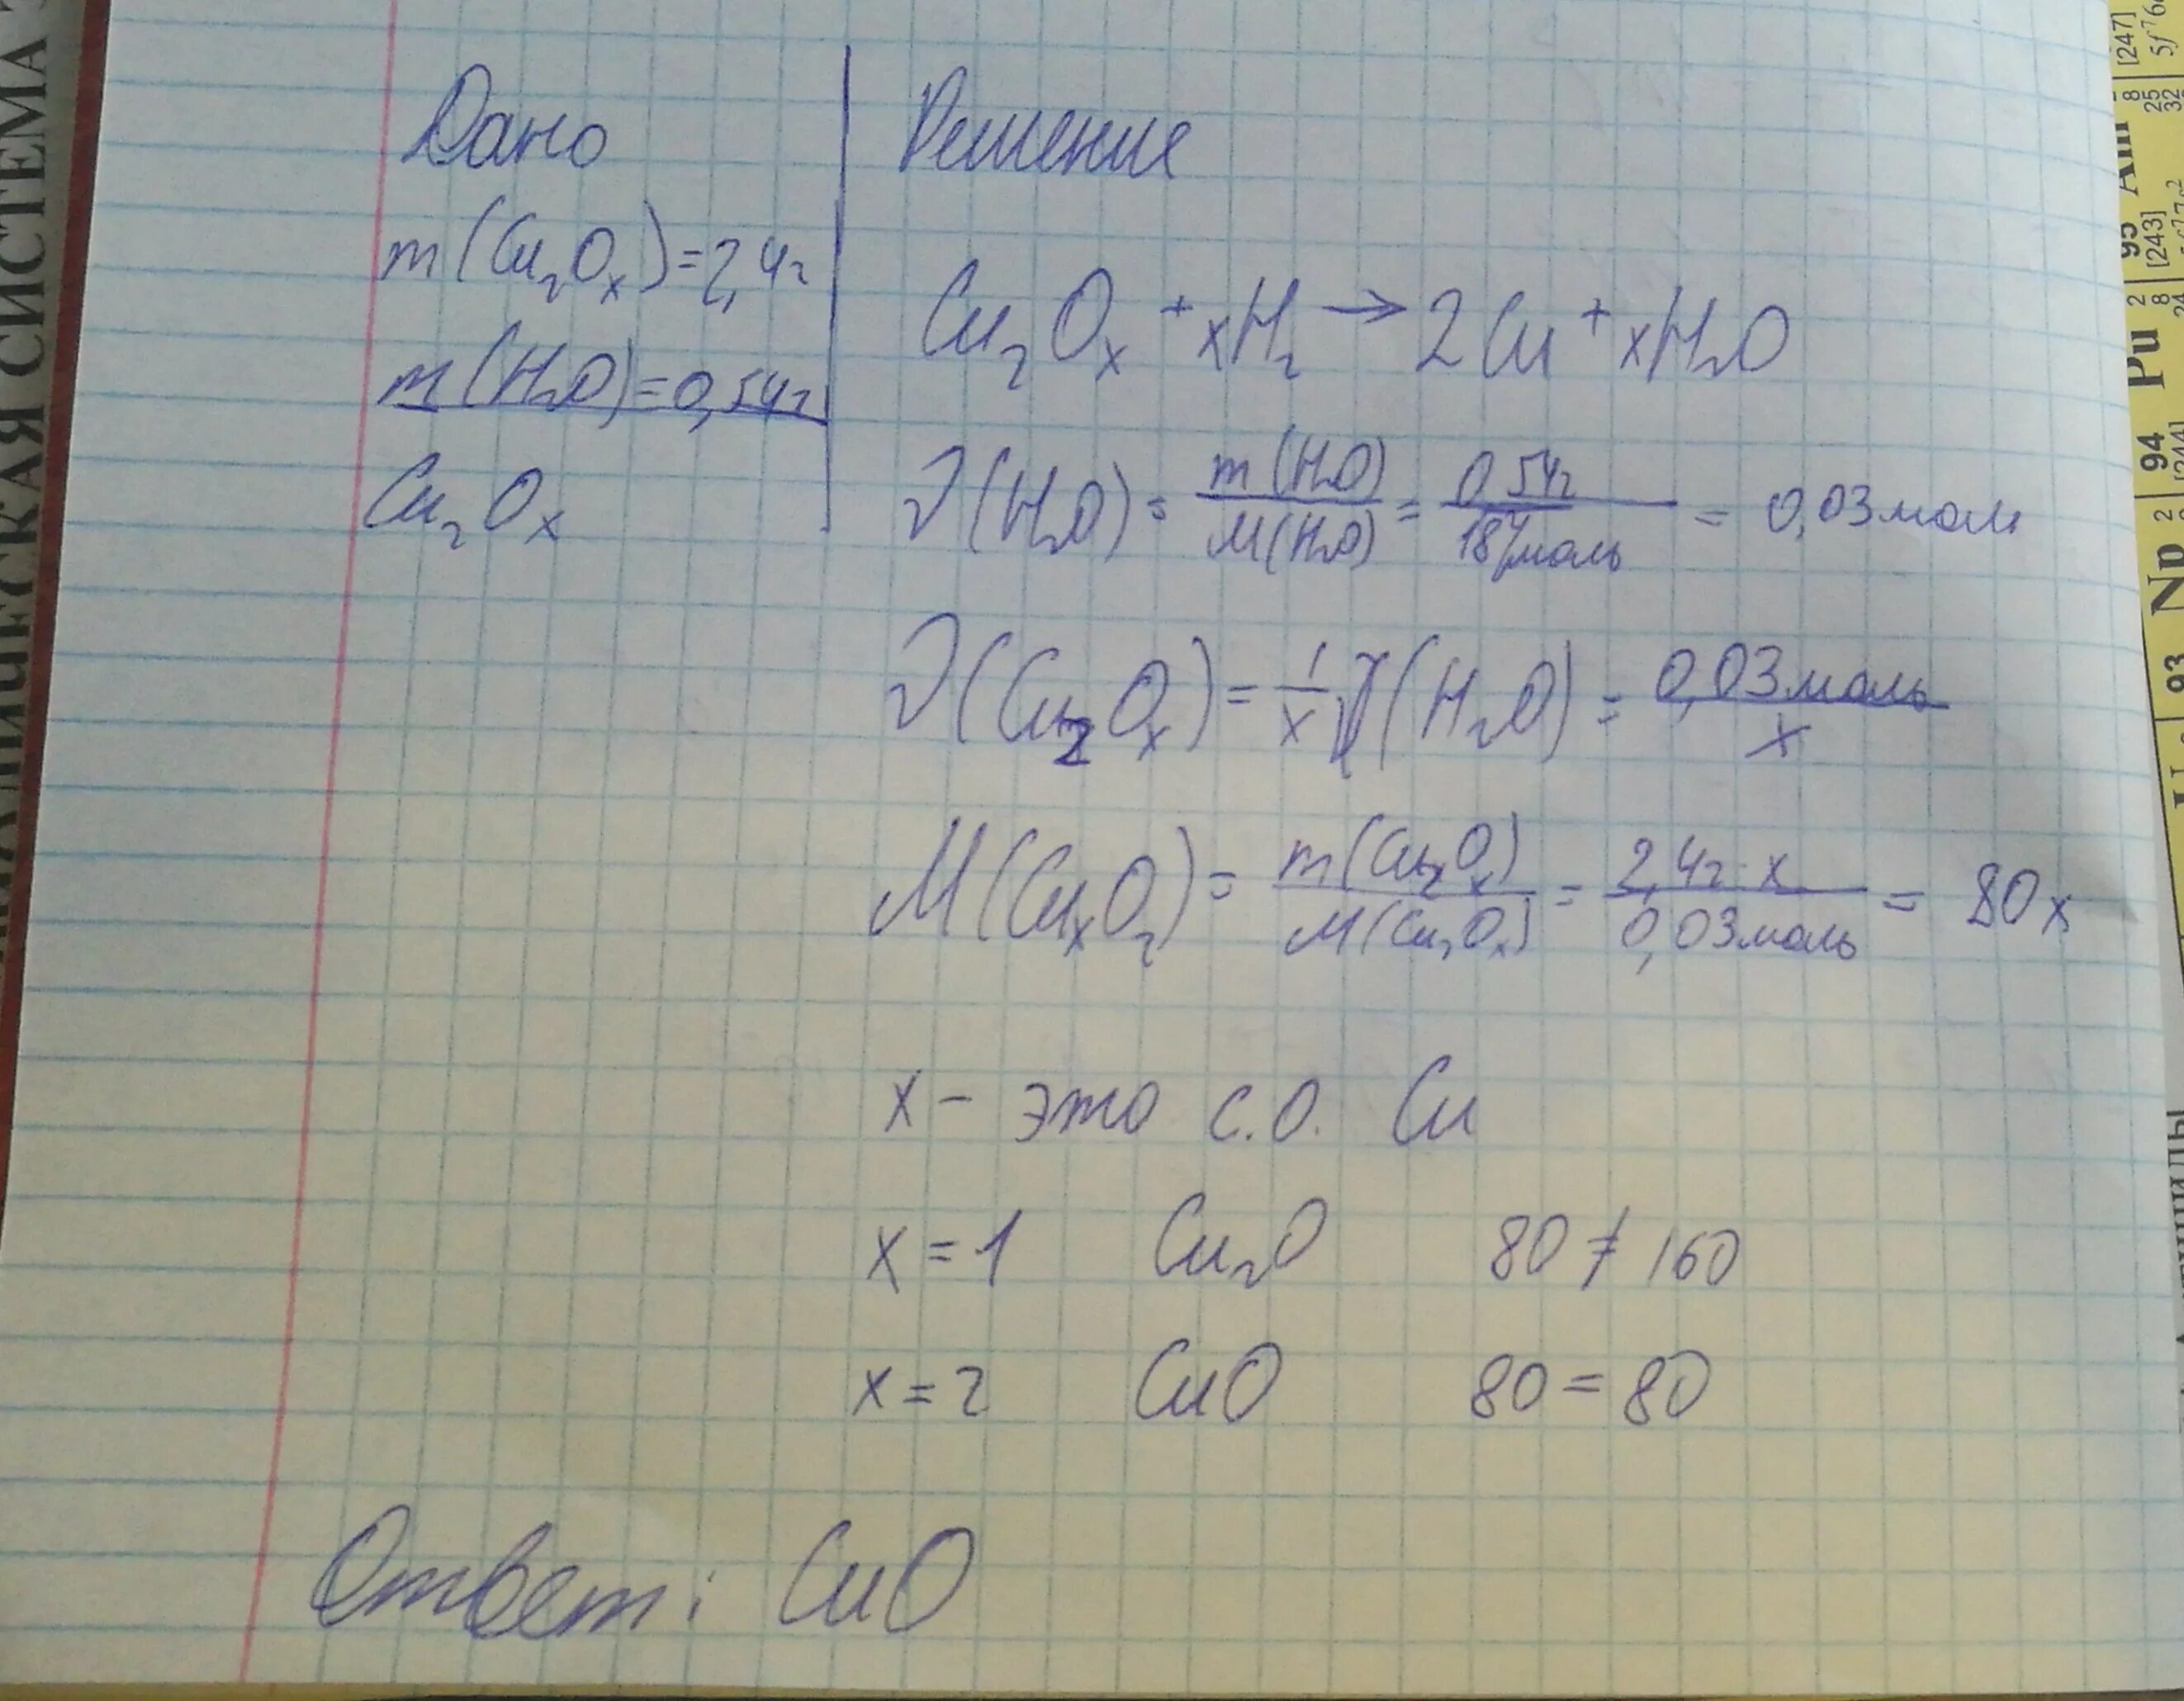 Дано
m(Cu₂Oₓ)=2,4г
m(H₂O)=0,54г
Cu₂Oₓ
Решение
Cu₂Oₓ + xH₂ → 2Cu + xH₂O
ν(H₂O) = m(H₂O)/M(H₂O) = 0,54г/18г/моль = 0,03моль
ν(Cu₂Oₓ) = 1/x ν(H₂O) = 0,03моль/x
M(CuₓO₂) = m(Cu₂Oₓ)/M(Cu₂Oₓ) = 2,4г·x/0,03моль = 80x
x – это с.о. Cu
x = 1 Cu₂O 80 ≠ 160
x = 2 CuO 80 = 80
Ответ: CuO
СИСТЕМА
95 Am
[243]
[247]
Pu
94
Np
93